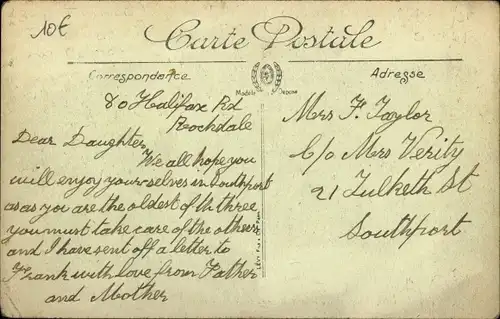 10€
Carte Postale
Correspondance
Adresse
Modèle Déposé
80 Halifax Rd
Rockdale
Dear Daughter,
We all hope you
will enjoy your-selves in Southport
as as you are the oldest of th three
you must take care of the others
and I have sent off a letter to
Frank with love from Father
and Mother
Mrs F. Taylor
C/o Mrs Verity
21 Tulketh St
Southport